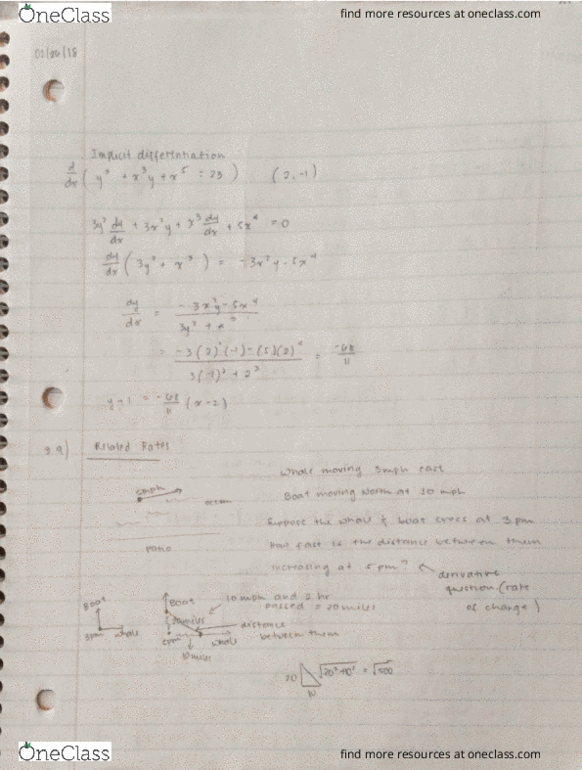 OneClass
find more resources at oneclass.com
Implicit differentiation
d/dx ( y³ + x³y + x⁵ = 23 ) (2,-1)
3y² dy/dx + 3x²y + x³ dy/dx + 5x⁴ = 0
dy/dx ( 3y² + x³ ) = -3x²y - 5x⁴
dy/dx = -3x²y - 5x⁴ / 3y² + x³
= -3(2)²(-1) - (5)(2)⁴ / 3(-1)² + 2³ = -68/11
y+1 = -68/11 (x-2)
3.9) Related Rates
Whale moving 5mph east
5mph
ocean
Boat moving North at 10 mph
Suppose the whale & boat cross at 3 pm
patio
How fast is the distance between them
increasing at 5 pm? derivative
question (rate
of change)
Boat
Boat
10 mph and 2 hr
passed = 20 miles
20 miles
distance
between them
3pm whale
5pm whale
10 miles
20 √20²+10² = √500
10
OneClass
find more resources at oneclass.com